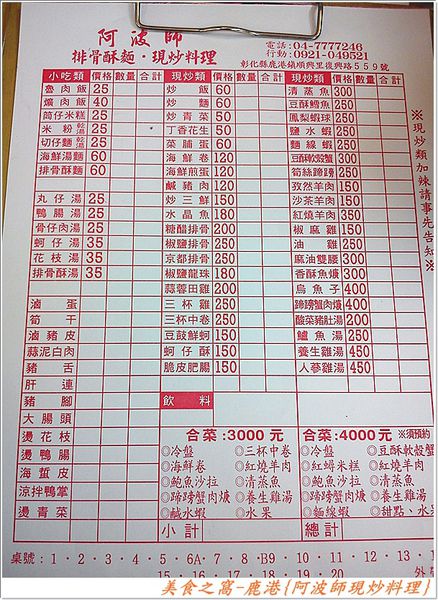 阿波師
排骨酥麵・現炒料理
電話:04-7777246
行動:0921-049521
彰化縣鹿港鎮順興里復興路559號
小吃類 價格 數量 合計
魯肉飯 25
爌肉飯 40
筒仔米糕 25
米粉 乾湯 25
切仔麵 乾湯 25
海鮮湯麵 60
排骨酥麵 60
丸仔湯 25
鴨腸湯 25
骨仔肉湯 25
蚵仔湯 35
花枝湯 35
排骨酥湯 35
滷蛋
筍干
滷豬皮
蒜泥白肉
豬舌
肝連
豬腳
大腸頭
燙花枝
燙鴨腸
海蜇皮
涼拌鴨掌
燙青菜
現炒類 價格 數量 合計
炒飯 60
炒麵 60
炒青菜 50
丁香花生 50
菜脯蛋 60
海鮮卷 120
海鮮煎蛋 120
鹹豬肉 120
炒三鮮 150
水晶魚 180
糖醋排骨 200
椒鹽排骨 200
京都排骨 250
椒鹽龍珠 180
蒜蓉田雞 200
三杯雞 250
三杯中卷 250
豆鼓鮮蚵 150
蚵仔酥 150
脆皮肥腸 150
飲料
現炒類 價格 數量 合計
清蒸魚 300
豆酥鱈魚 250
鳳梨蝦球 200
鹽水蝦 250
麵線蝦 250
豆酥軟殼蟹 300
筍絲蹄膀 250
孜然羊肉 150
沙茶羊肉 150
紅燒羊肉 350
椒麻雞 150
油雞 250
麻油雙腰 300
香酥魚 300
烏魚子 400
蹄膀蟹肉焿 400
酸菜豬肚湯 200
鱸魚湯 250
養生雞湯 450
人蔘雞湯 450
※現炒類加辣請事先告知※
合菜:3000元
◎冷盤 ◎三杯中卷
◎海鮮卷 ◎紅燒羊肉
◎鮑魚沙拉 ◎清蒸魚
◎蹄膀蟹肉焿 ◎養生雞湯
◎鹹水蝦 ◎水果
合菜:4000元 ※須預約
◎冷盤 ◎豆酥軟殼蟹
◎紅蟳米糕 ◎紅燒羊肉
◎鮑魚沙拉 ◎清蒸魚
◎蹄膀蟹肉焿 ◎養生雞湯
◎麵線蝦 ◎甜點、水果
小計 總計
桌號:1・2・3・5・6A・7・8・B9・10・11・12・13・14
15・16・17・18・19・20 外帶
美食之窩-鹿港{阿波師現炒料理}